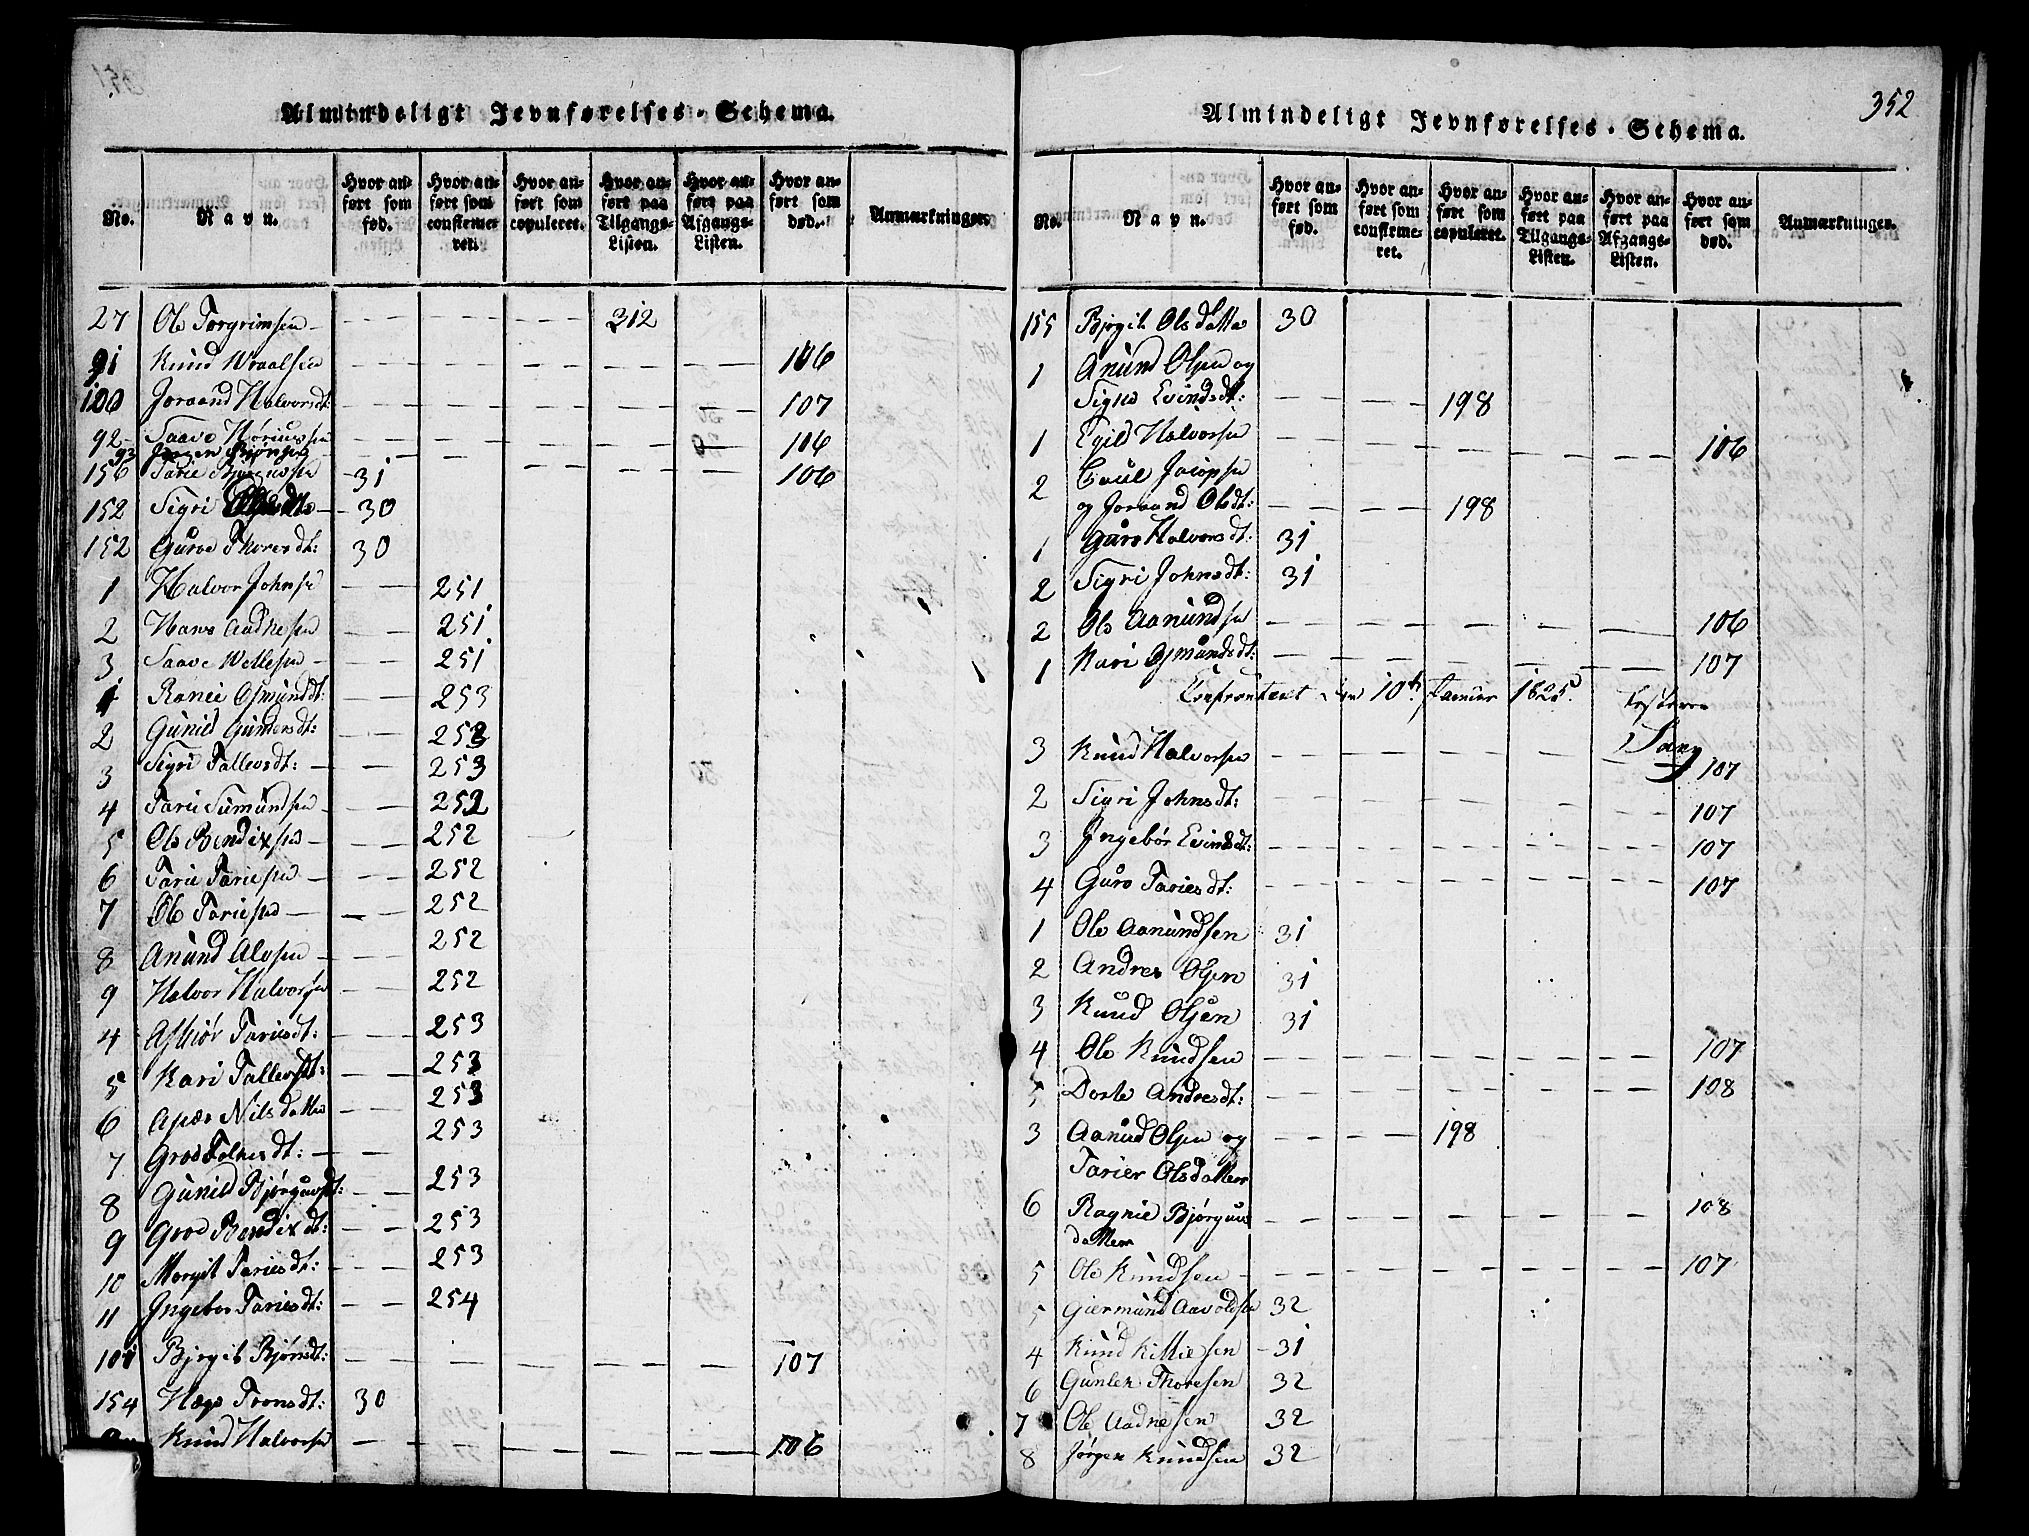 Almindeligt Jevnførelses-Schema.
No. Navn. Hvor anført som fød. Hvor anført som confirmeret. Hvor anført som copuleret. Hvor anført paa Tilgangs-Listen. Hvor anført paa Afgangs-Listen. Hvor anført som død. Anmærkninger.
27 Ole Torgrimsen 312
91 Knud Wraalsen 106
100 Joraand Halvorsdt: 107
92 Saave 106
93
156 Tarie 31 106
152 Sigri 30
152 Guroe Thoresdt: 30
1 Halvor Johnsen 251
2 Hans Aadnesen 251
3 Saave Wellesen 251
1 Ranei Osmundt: 253
2 Gunild Gundersdt: 253
3 Sigri Tallevsdt: 253
4 Tarie Sumundsen 252
5 Ole Bendixsen 252
6 Tarie Tariesen 252
7 Ole Tariesen 252
8 Anund Alvsen 252
9 Halvor Halvorsen 252
4 Asbiør Tariesdt: 253
5 Kari Tallevsdt: 253
6 Asær Nilsdatter 253
7 Groe Folkesdt: 253
8 Gunild Bjørguvsdt: 253
9 Groe Bendixdt: 253
10 Margit Tariesdt: 253
11 Ingebor Tariesdt: 254
101 Birgit Bjørnsdt: 107
154 Hæge Tronsdt: 30
Knud Halvorsen 106
352
Almindeligt Jevnførelses-Schema.
No. Navn. Hvor anført som fød. Hvor anført som confirmeret. Hvor anført som copuleret. Hvor anført paa Tilgangs-Listen. Hvor anført paa Afgangs-Listen. Hvor anført som død. Anmærkninger.
155 Birgit Olsdatter 30
1 Anund Olsen og
Signe Evindsdt: 198
1 Egild Halvorsen 106
2 Jacopsen
og Joraand Olsdt: 198
1 Guro Halvorsdt: 31
2 Sigri Johnsdt: 31
2 Ole Aanundsen 106
1 Kari Osmundsdt: 107
Confronteret den 10de Januar 1825.
3 Knud Halvorsen 107
2 Sigri Johnsdt: 107
3 Ingebor Evindsdt: 107
4 Guro Tariesdt: 107
1 Ole Aanundsen 31
2 Andres Olsen 31
3 Knud Olsen 31
4 Ole Knudsen 107
5 Dorte Andresdt: 108
3 Aanund Olsen og 198
Tarier Olsdatter
6 Ragnie Bjørguvs 108
datter
5 Ole Knudsen 107
5 Giermund Aavoldsen 32
4 Knud Kittiesen 31
6 Gunlek Thoresen 32
7 Ole Aadnesen 32
8 Jørgen Knudsen 32